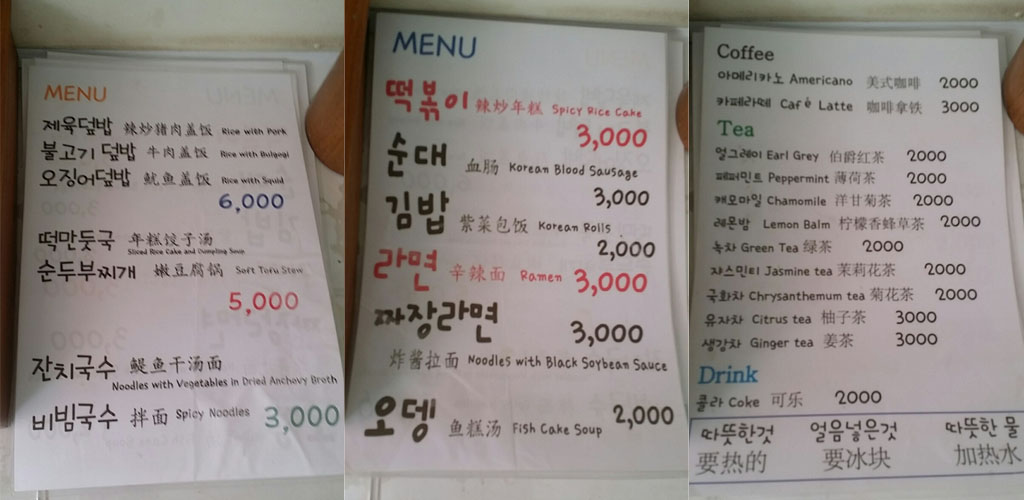 MENU
제육덮밥 辣炒猪肉盖饭 Rice with Pork
불고기 덮밥 牛肉盖饭 Rice with Bulgogi
오징어덮밥 鱿鱼盖饭 Rice with Squid
6,000
떡만둣국 年糕饺子汤
Sliced Rice Cake and Dumpling Soup
순두부찌개 嫩豆腐锅 Soft Tofu Stew
5,000
잔치국수 鳀鱼干汤面
Noodles with Vegetables in Dried Anchovy Broth
비빔국수 拌面 Spicy Noodles 3,000
MENU
떡볶이 辣炒年糕 Spicy Rice Cake
3,000
순대 血肠 Korean Blood Sausage
3,000
김밥 紫菜包饭 Korean Rolls
2,000
라면 辛辣面 Ramen 3,000
짜장라면 3,000
炸酱拉面 Noodles with Black Soybean Sauce
오뎅 鱼糕汤 Fish Cake Soup 2,000
Coffee
아메리카노 Americano 美式咖啡 2000
카페라떼 Cafè Latte 咖啡拿铁 3000
Tea
얼그레이 Earl Grey 伯爵红茶 2000
페퍼민트 Peppermint 薄荷茶 2000
캐모마일 Chamomile 洋甘菊茶 2000
레몬밤 Lemon Balm 柠檬香蜂草茶 2000
녹차 Green Tea 绿茶 2000
쟈스민티 Jasmine tea 茉莉花茶 2000
국화차 Chrysanthemum tea 菊花茶 2000
유자차 Citrus tea 柚子茶 3000
생강차 Ginger tea 姜茶 3000
Drink
콜라 Coke 可乐 2000
따뜻한것 얼음넣은것 따뜻한 물
要热的 要冰块 加热水